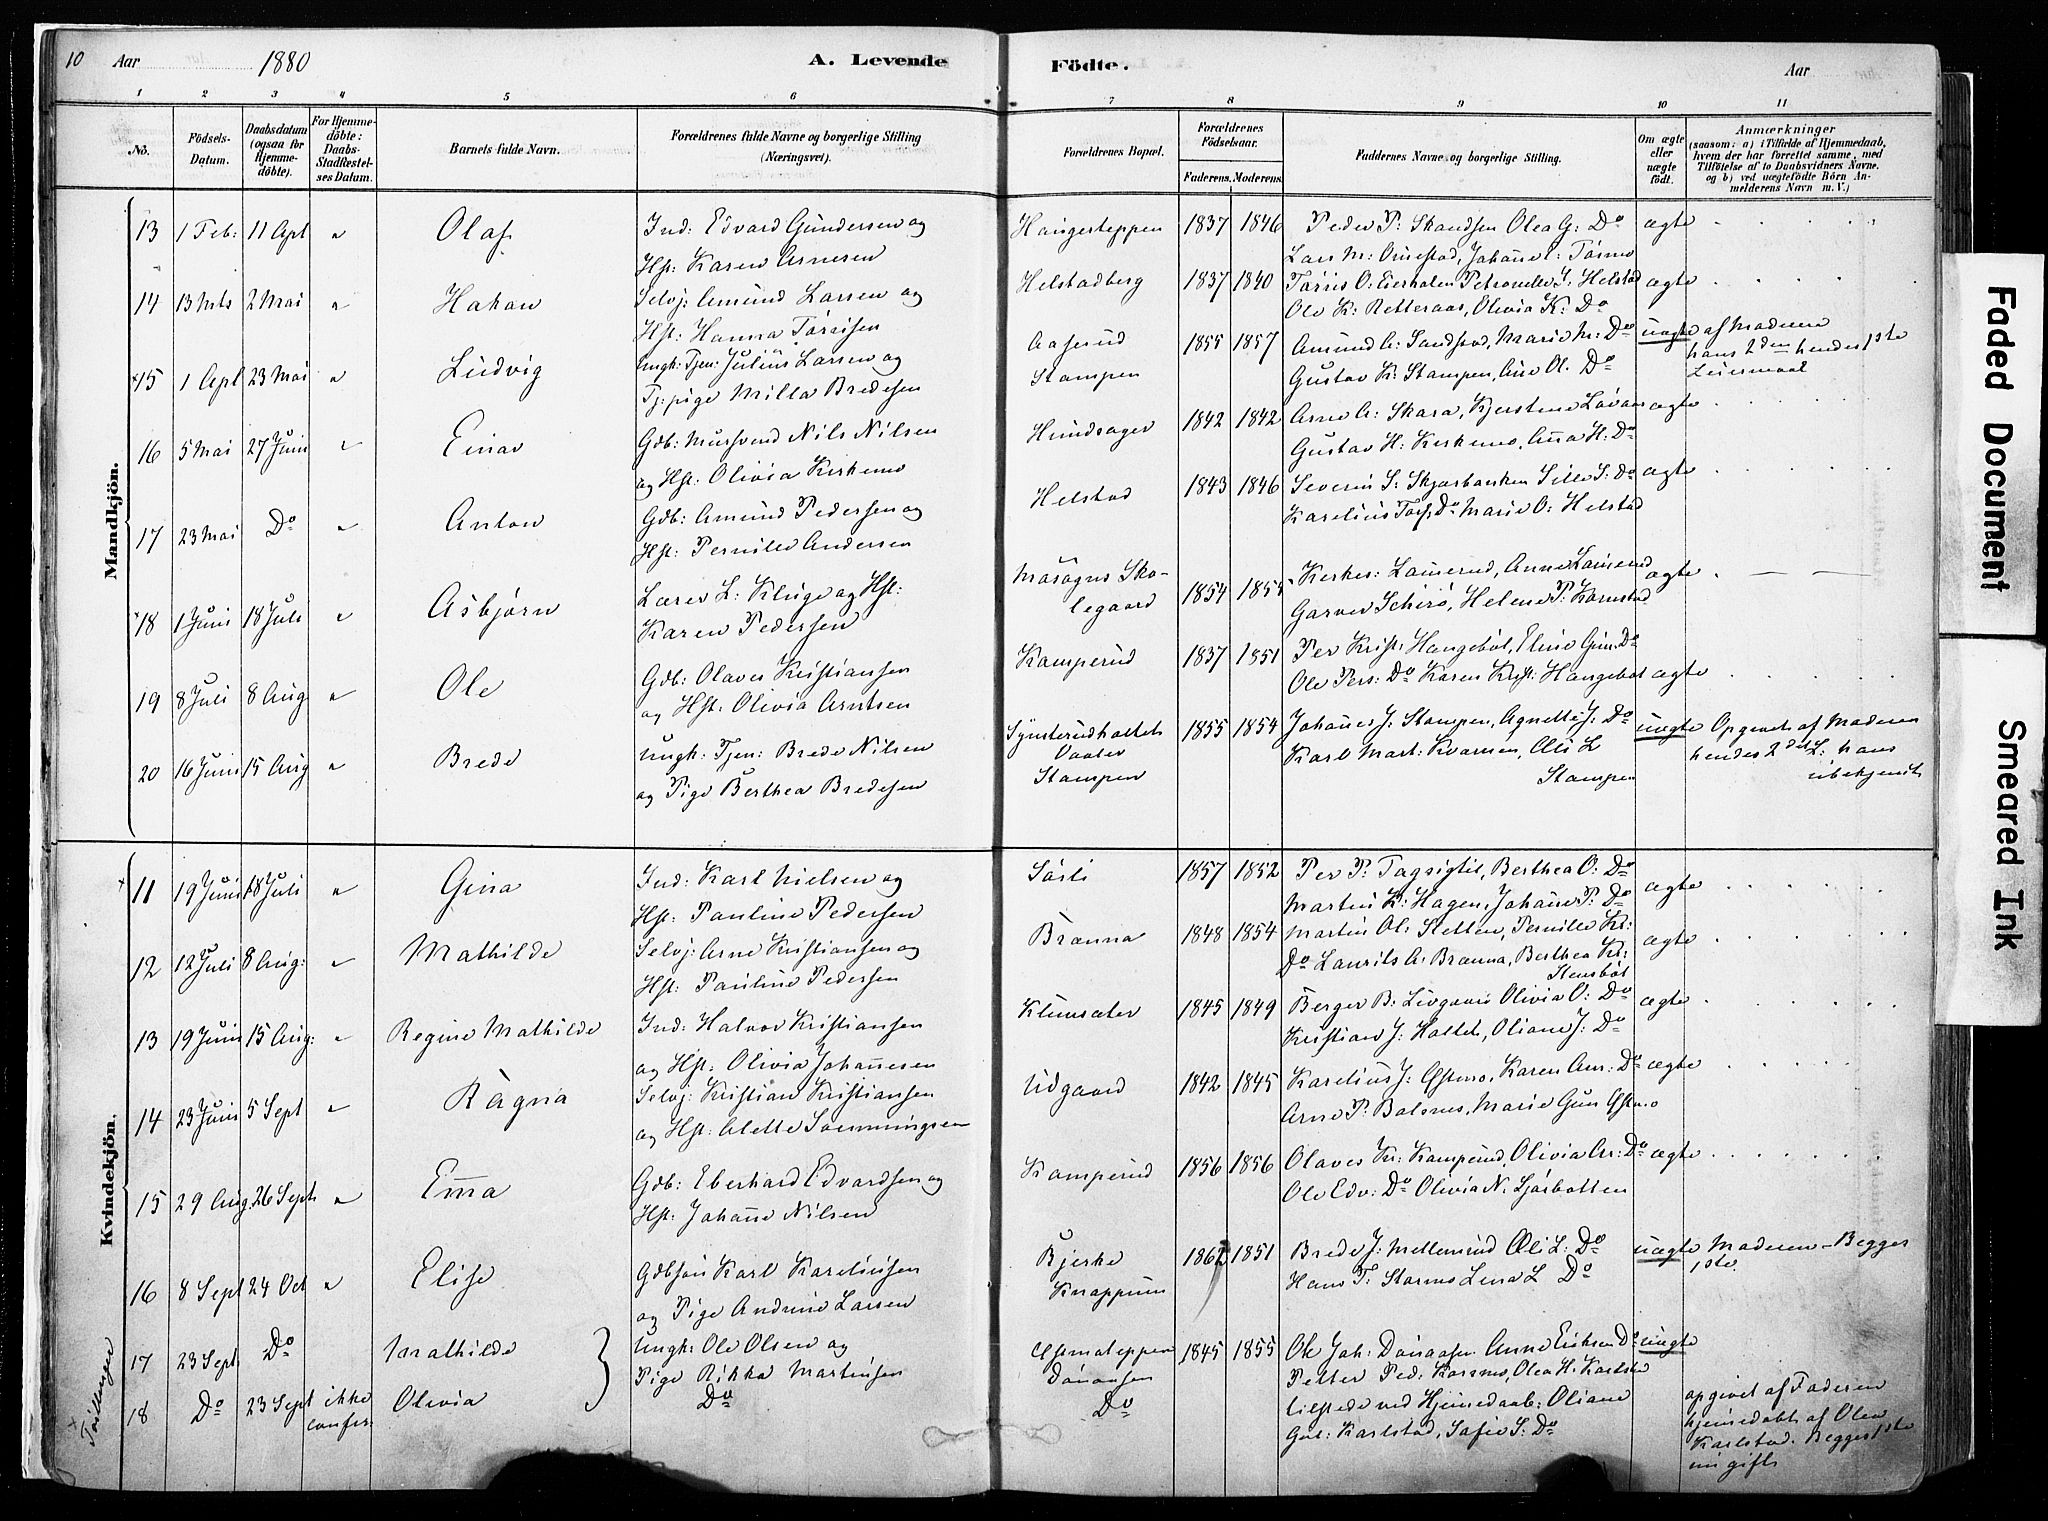 10 Aar 1880 A. Levende Födte. Aar
1 2 3 4 5 6 7 8 9 10 11
No. Födsels-Datum. Daabsdatum (ogsaa for Hjemmedöbte). For Hjemmedöbte: Daabs-Stadfæstelses Datum. Barnets fulde Navn. Forældrenes fulde Navne og borgerlige Stilling (Næringsvei). Forældrenes Bopæl. Forældrenes Födselsaar. Faderens. Moderens. Faddernes Navne og borgerlige Stilling. Om ægte eller uægte födt. Anmærkninger (saasom: a) i Tilfælde af Hjemmedaab, hvem der har forrettet samme, med Tilföielse af to Daabsvidners Navne. og b) ved uægtefödte Börn Anmelderens Navn m. V.)
Mandkjön.
13 1 Feb: 11 Apl " Olaf Ind: Edvard Gundersen og Haugesteppen 1837 1846 Peder P: Skandsen Olea G: Do ægte
Hst: Karen Arnesen Lars M: Ornestad, Johanne L: Tørmo
14 13 Mts 2 Mai " Hakon Selvj: Amund Larsen og Helstadberg 1837 1840 Tørris O: Eierholen Petronelle T: Helstad ægte
Hst: Hanna Tørrisen Ole K: Retteraas, Olivia K: Do
15 1 Apl 23 Mai " Ludvig Ungk: Tjen: Julius Larsen og Aaserud 1855 1857 Amund A: Sandstad, Marie M: Do uægte af Moderen
Tj: pige Milla Bredesen Stampen Gustav K: Stampen, Ane Ol. Do hans 2den hendes 1ste
Leiermaal
16 5 Mai 27 Juni " Einar Gdb: Mursvend Nils Nilsen Hundsager 1842 1842 Arne A: Skara, Kjerstine Løvaas ægte
og Hst: Olivia Kirkemo Gustav H: Kirkemo, Anna H: Do
17 23 Mai Do " Anton Gdb: Amund Pedersen og Helstad 1843 1846 Severin S: Skjørbækken Sille S: Do ægte
Hst: Pernille Andersen Karelius Torf: Do Marie O: Helstad
18 1 Juni 18 Juli " Asbjørn Lærer L: Kluge og Hst: Masogns Sko- 1854 1855 Kirkes: Lamerud, Anne Lamerud ægte
Karen Pedersen legaard Garver Schirø, Helene P: Karnstad
19 8 Juli 8 Aug " Ole Gdb: Olaves Kristiansen Kamperud 1837 1851 Per Krist: Haugebøl, Eline Gun: Do
og Hst: Olivia Arntsen Ole Pers: Do Karen Krist: Haugebøl ægte
20 16 Juni 15 Aug " Brede Ungk: Tjen: Brede Nilsen Synsterudholtet 1855 1854 Johannes J. Stampen, Agnette J: Do uægte Opgivet af Moderen
og Pige Berthea Bredesen Vaaler Karl Mart: Kvarnen, Oli L hendes 2det L: hans
Stampen Stampen ubekjendt
Kvindekjön.
11 19 Juni 18 Juli " Gina Ind: Karl Nielsen og Sørli 1857 1852 Per P: Fagsigtil, Berthea O: Do ægte
Hst: Pauline Pedersen Martin K: Hagen, Johanne P: Do
12 12 Juli 8 Aug: " Mathilde Selvj: Arne Kristiansen og Brænna 1848 1854 Martin Ol: Sletten, Pernille Kr: ægte
Hst: Pauline Pedersen Do Laurits A. Brænna, Berthea Kr:
Stensbøl
13 19 Juni 15 Aug: " Regine Mathilde Ind: Halvor Kristiansen Klemsæter 1845 1849 Berger B: Livgaard Olivia O: Do ægte
og Hst: Olivia Johannesen Kristian J: Holtet, Oliane J: Do
14 23 Juni 5 Sept " Ragna Selvj: Kristian Kristiansen Udgaard 1842 1845 Karelius J: Ofstmo, Karen Am: Do ægte
og Hst: Alette Svenningsen Arne P. Balsnes, Marie Gun Ofstmo
15 29 Aug. 26 Sept " Emma Gdb: Eberhard Edvardsen og Kamperud 1856 1856 Olaves Kr: Kamperud, Olivia Ar: Do ægte
Hst: Johanne Nilsen Ole Edv: Do Olivia N. Sjøbotten
16 8 Sept 24 Oct " Elise Gdbsøn Karl Kareliusen Bjerke 1862 1851 Brede J: Mellemrud Oli L: Do uægte Moderen – Begges
og Pige Andrine Larsen Knappum Hans T: Starmo Lena L Do 1ste
17 23 Sept Do Mathilde } Ungk: Ole Olsen og 1845 1855 Ole Joh: Danaasen Anne Eriksen Do uægte
Pige Rikka Martinsen Danaasen Petter Ped: Karsmo, Olea H: Karlstad
Tvillinger 18 Do 23 Sept ikke Olivia Do Do tilstede ved Hjemmedaab: Oliane opgivet af Faderen
confir: Gul: Karlstad, Sofie S: Do hjemmedøbt af Olea
Karlstad. Begges 1ste
ungift
Faded Document
Smeared Ink